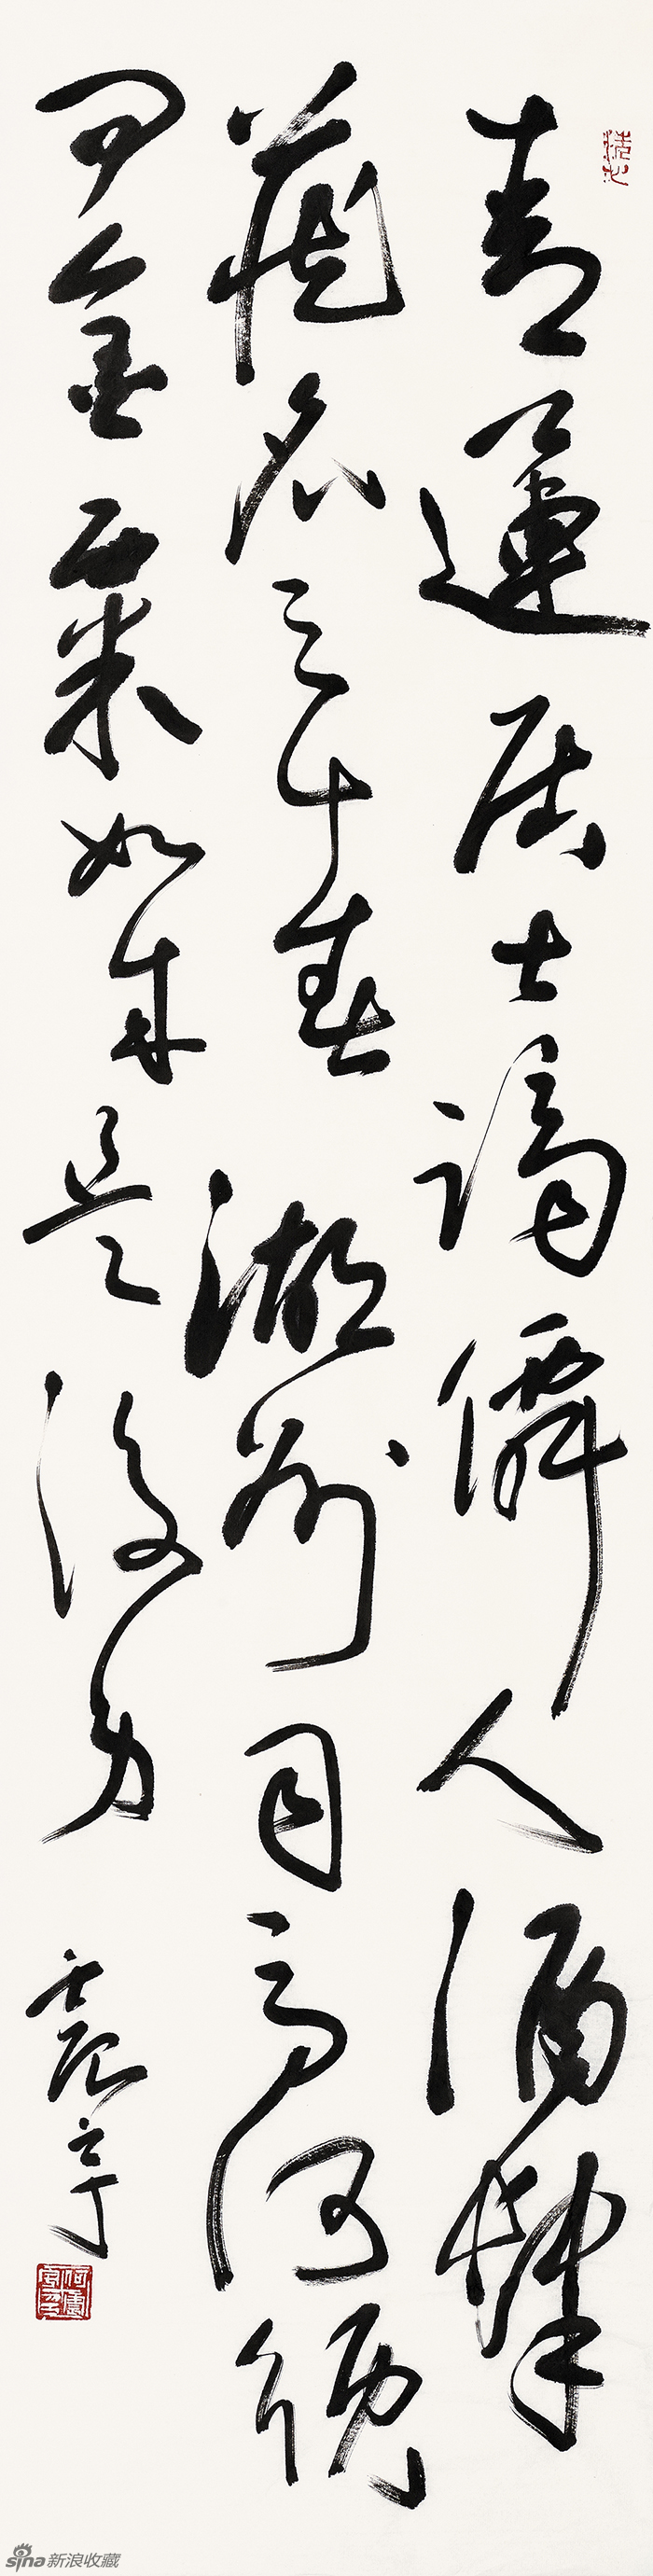 青蓮居士謫僊人酒肆
藏名三十春湖州司馬何須
問金粟如來是後身
震亭
sina新浪收藏